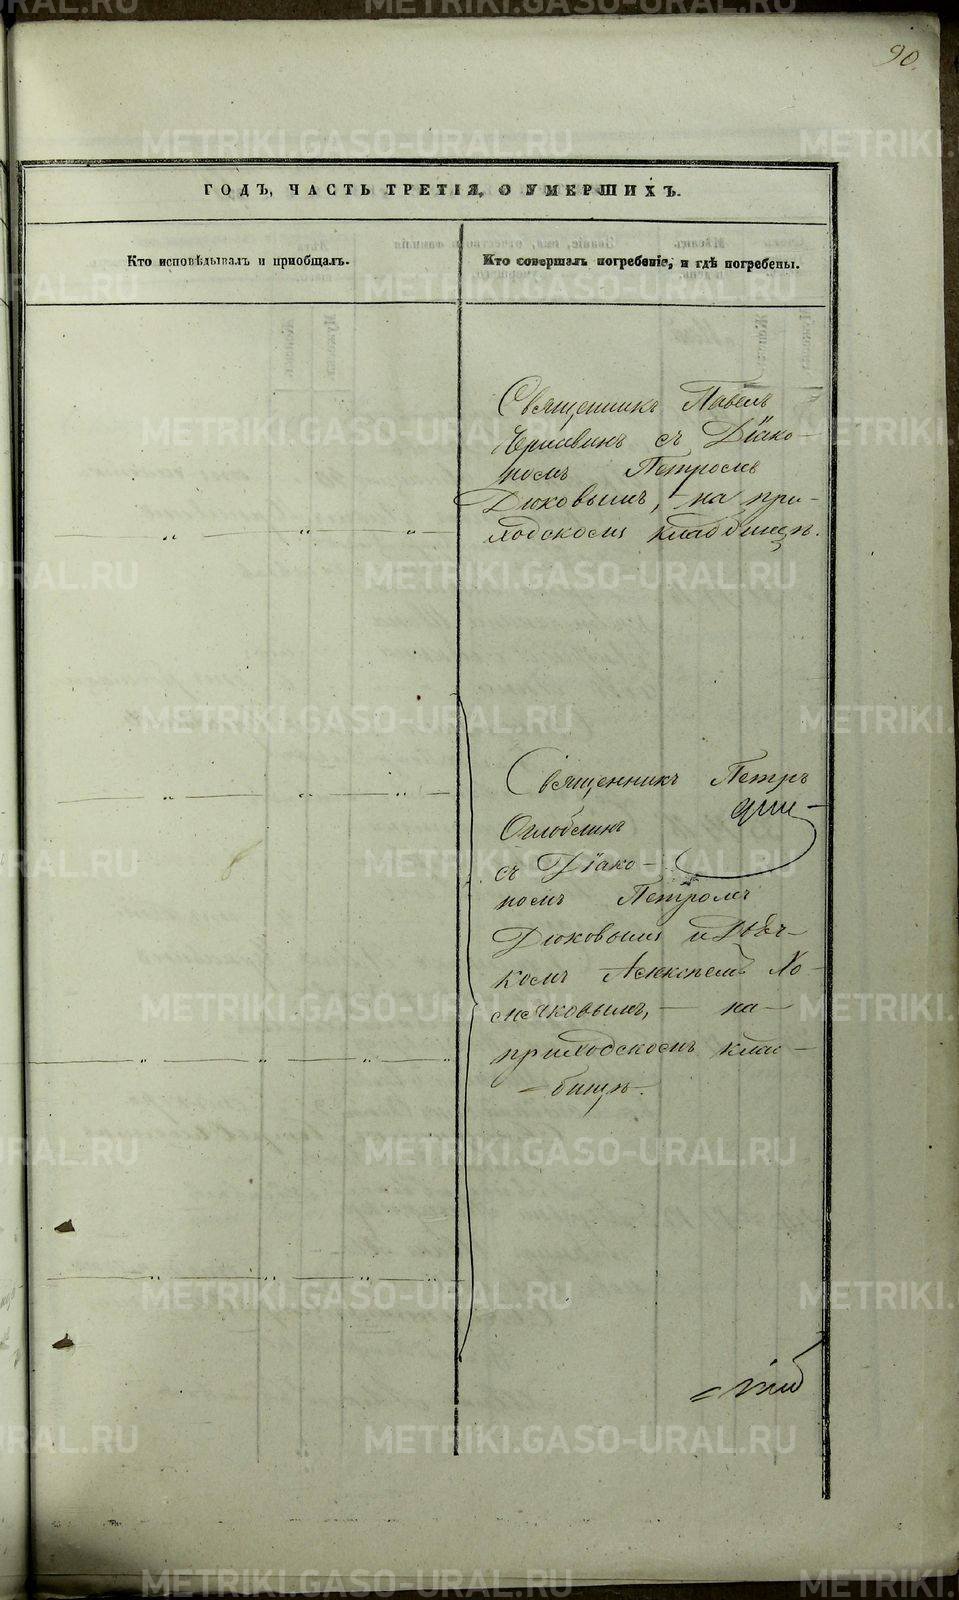 90.
ГОДЪ, ЧАСТЬ ТРЕТІЯ, О УМЕРШИХЪ.
Кто исповѣдывалъ и приобщалъ.
Кто совершалъ погребеніе, и гдѣ погребены.
Священникъ Павелъ
Чернавинъ съ Діако-
номъ Петромъ
Дюковымъ, на при-
ходскомъ кладбищѣ.
Священникъ Петръ
Оглоблинъ
съ Діако-
номъ Петромъ
Дюковымъ и Дьяч-
комъ
Хо-
мяковымъ, на
приходскомъ клад-
бищѣ.
METRIKI.GASO-URAL.RU